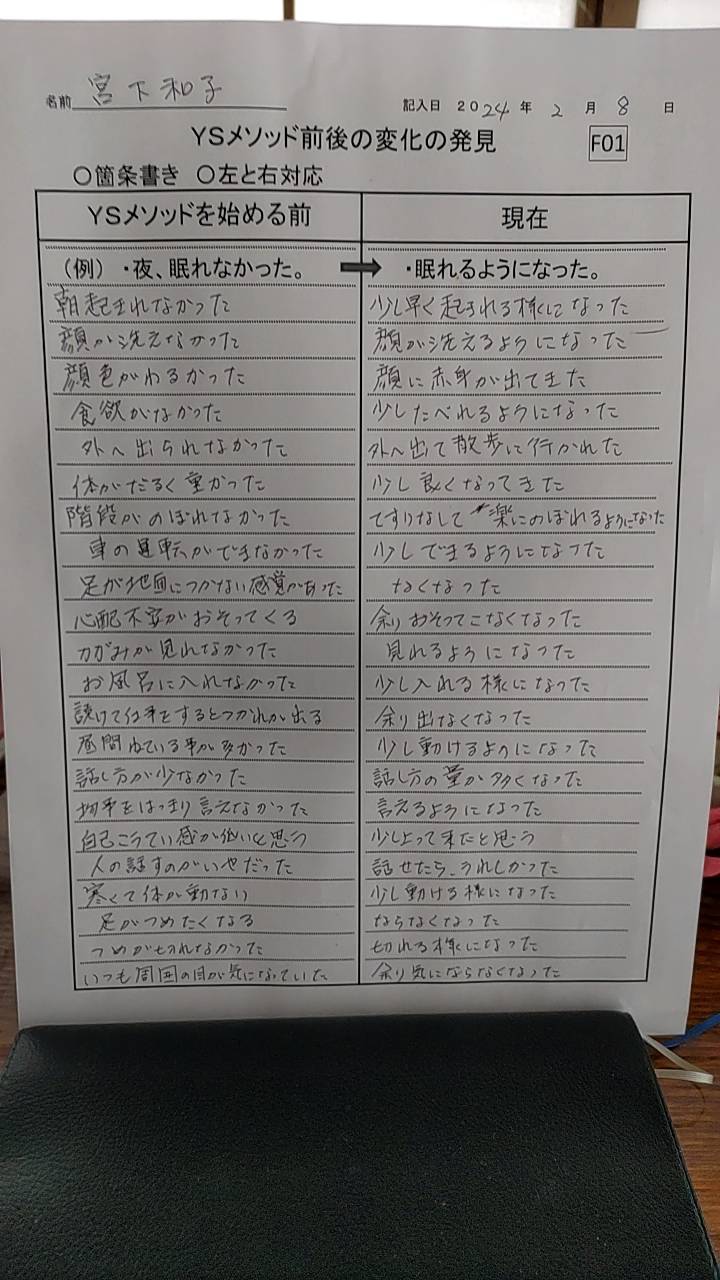 名前 宮下和子 記入日 2024年 2月 8日
YSメソッド前後の変化の発見 F01
○箇条書き ○左と右対応
YSメソッドを始める前 現在
(例) ・夜、眠れなかった。 ・眠れるようになった。
朝起きれなかった 少し早く起きれる様になった
顔が洗えなかった 顔が洗えるようになった
顔色がわるかった 顔に赤身が出てきた
食欲がなかった 少したべれるようになった
外へ出られなかった 外へ出て散歩に行かれた
体がだるく重かった 少し良くなってきた
階段がのぼれなかった てすりなしで楽にのぼれるようになった
車の運転ができなかった 少しできるようになった
足が地面につかない感覚があった なくなった
心配不安がおそってくる 余りおそってこなくなった
カガみが見れなかった 見れるようになった
お風呂に入れなかった 少し入れる様になった
続けて仕事をするとつかれが出る 余り出なくなった
昼間ねている事が多かった 少し動けるようになった
話し方が少なかった 話し方の量が多くなった
物事をはっきり言えなかった 言えるようになった
自己こうてい感が低いと思う 少し上って来たと思う
人の話すのがいやだった 話せたら、うれしかった
寒くて体が動ない 少し動ける様になった
足がつめたくなる ならなくなった
つめが切れなかった 切れる様になった
いつも周囲の目が気になっていた 余り気にならなくなった